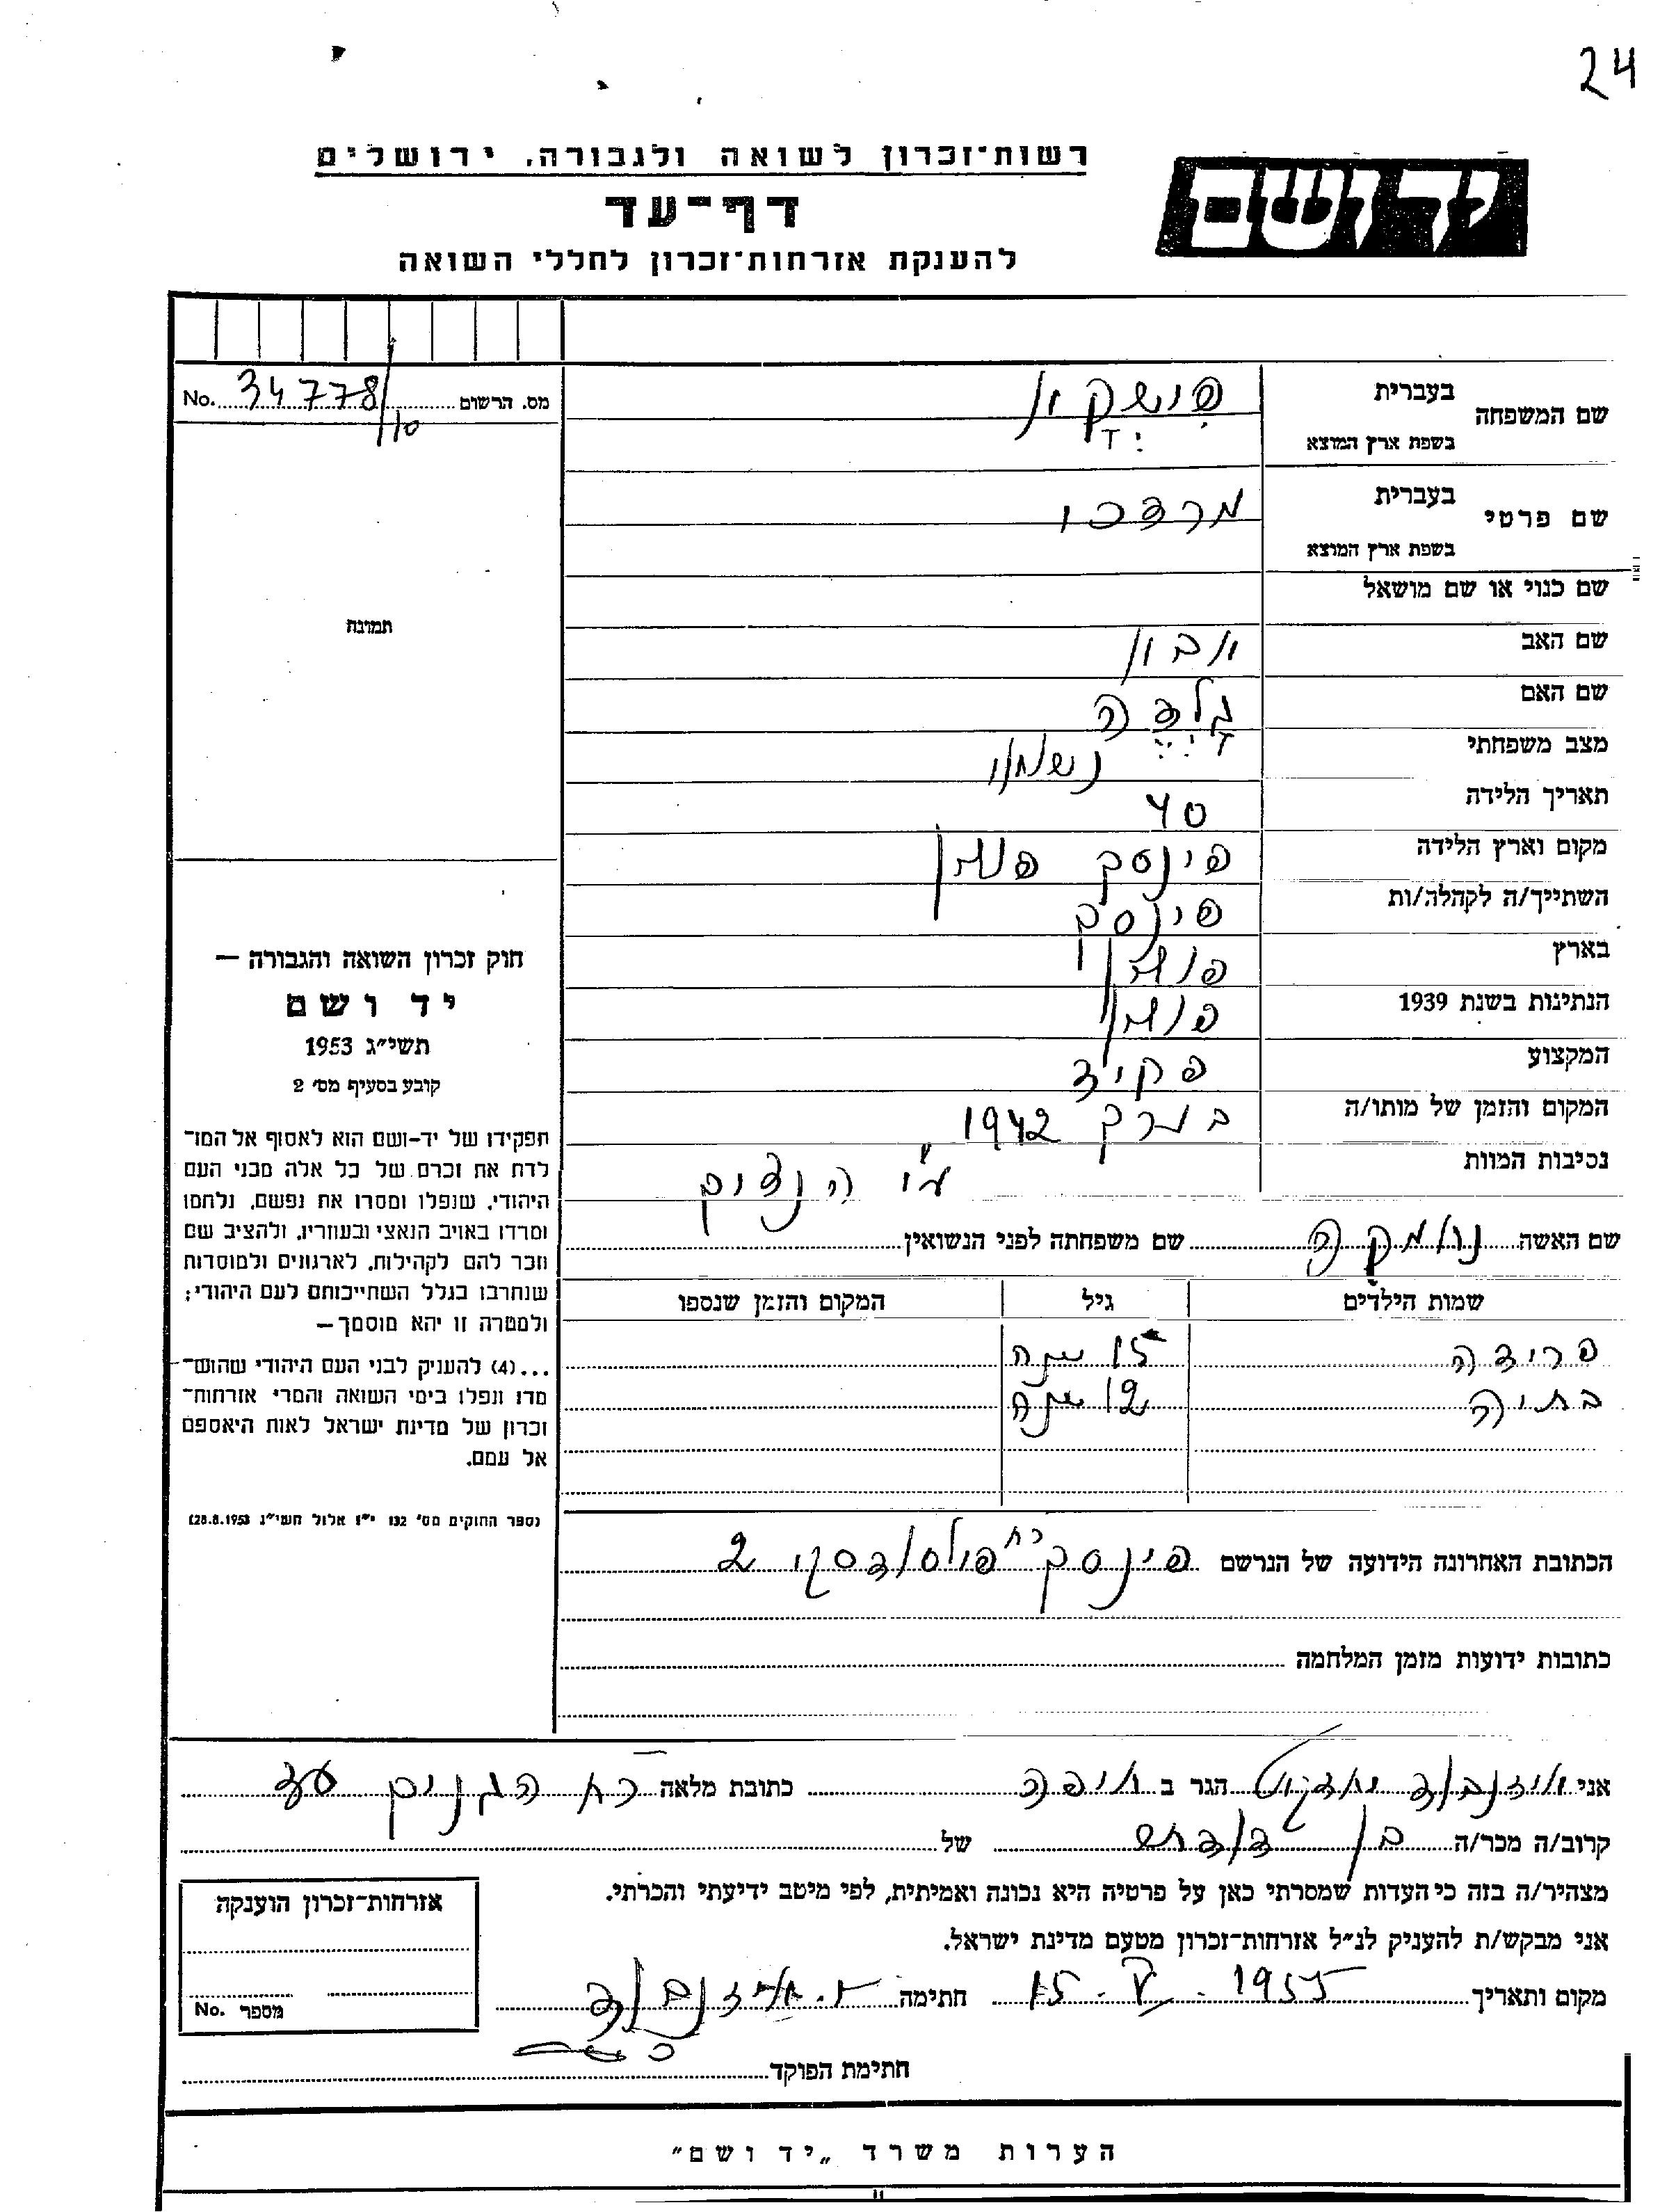 24
רשות־זכרון לשואה ולגבורה, ירושלים
יד ושם
דף־עד
להענקת אזרחות־זכרון לחללי השואה
מס. הרשום 34778/10 No.
שם המשפחה בעברית פושקין
בשפת ארץ המוצא
שם פרטי בעברית מרדכי
בשפת ארץ המוצא
שם כנוי או שם מושאל
תמונה
שם האב
שם האם גלדה
מצב משפחתי נשאוי
תאריך הלידה 40
מקום וארץ הלידה פינסק פולין
השתייך/ה לקהלה/ות פינסק
בארץ פולין
הנתינות בשנת 1939 פולין
המקצוע פקיד
המקום והזמן של מותו/ה 1942
נסיבות המוות ע"י
שם האשה שם משפחתה לפני הנשואין
שמות הילדים גיל המקום והזמן שנספו
פרידה 15 שנה
בתיה 12 שנה
הכתובת האחרונה הידועה של הנרשם פינסק רח 2
כתובות ידועות מזמן המלחמה
חוק זכרון השואה והגבורה —
יד ושם
תשי"ג 1953
קובע בסעיף מס' 2
תפקידו של יד-ושם הוא לאסוף אל המו־
לדת את זכרם של כל אלה מבני העם
היהודי, שנפלו ומסרו את נפשם, נלחמו
ומרדו באויב הנאצי ובעוזריו, ולהציב שם
וזכר להם לקהילות, לארגונים ולמוסדות
שנחרבו בגלל השתייכותם לעם היהודי;
ולמטרה זו יהא מוסמך—
...(4) להעניק לבני העם היהודי שהוש־
מדו ונפלו בימי השואה והמרי אזרחות־
זכרון של מדינת ישראל לאות היאספם
אל עמם.
(ספר החוקים מס' 132 י"ז אלול תשי"ג 28.8.1953)
אני הגר ב חיפה כתובת מלאה רח הגנים
קרוב/ה מכר/ה בן דודתו של
מצהיר/ה בזה כי העדות שמסרתי כאן על פרטיה היא נכונה ואמיתית, לפי מיטב ידיעתי והכרתי.
אני מבקש/ת להעניק לנ"ל אזרחות-זכרון מטעם מדינת ישראל.
מקום ותאריך 15. V. 1955 חתימה
חתימת הפוקד
אזרחות-זכרון הוענקה
מספר No.
הערות משרד „יד ושם"